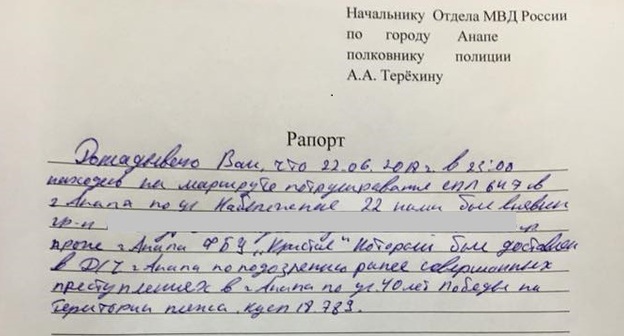 Начальнику Отдела МВД России
по городу Анапе
полковнику полиции
А.А. Терёхину
Рапорт
Докладываю Вам, что 22.06.2017г. в 23:00
находясь на маршруте патрулирования СПП 647 в
г Анапа по ул Набережные 22 нами был выявлен
гр-н ур
прож г Анапа ФБУ „Кристал" который был доставлен
в Д/Ч г Анапа по подозрению ранее совершонных
преступлениях в г Анапа по ул 40 лет Победы на
Територии пляжа. кусп 18.789.